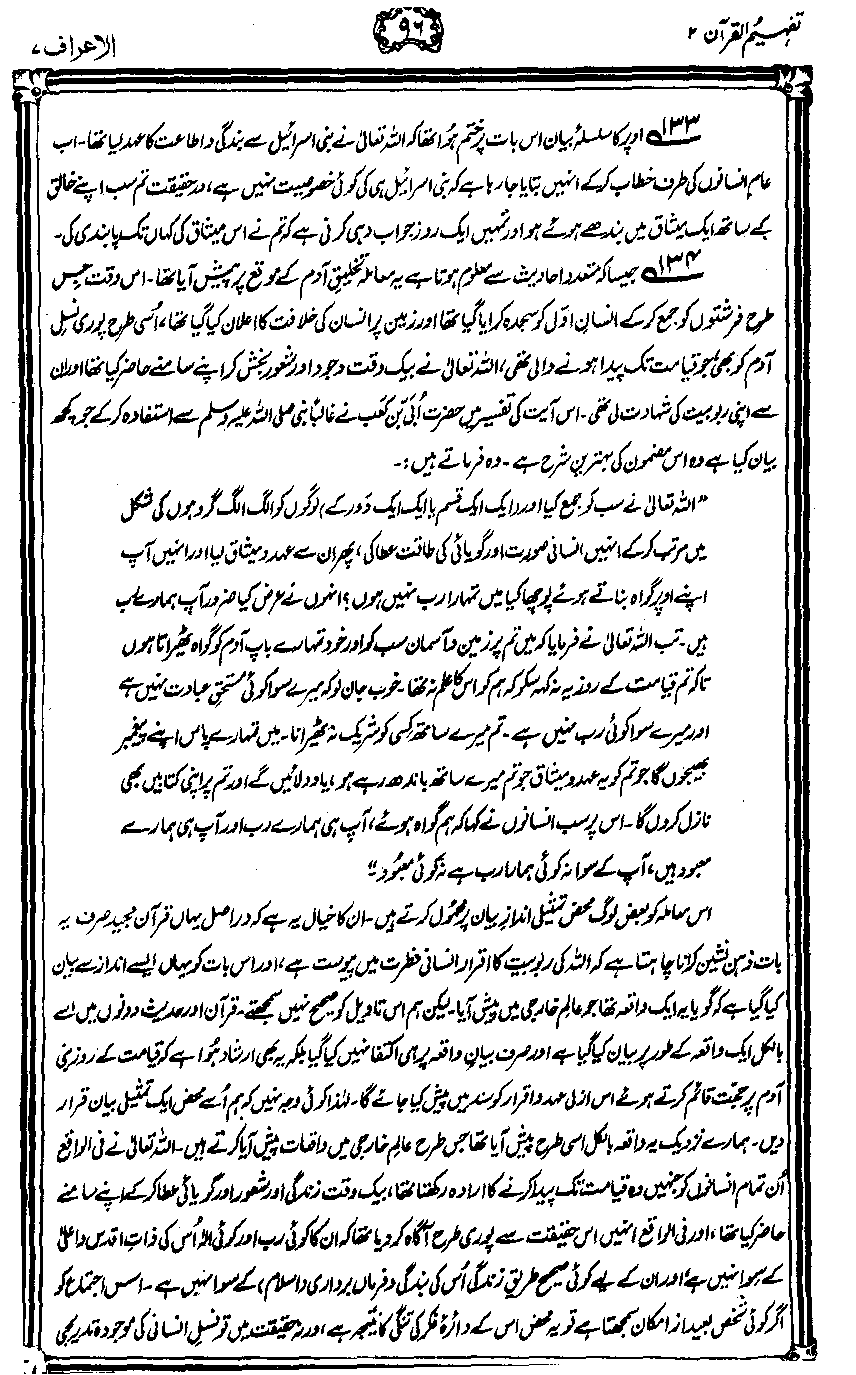 تفہیم القرآن ۲
۹۶
الاعراف ۷
۱۳۳ اوپر کا سلسلۂ بیان اس بات پر ختم ہوا تھا کہ اللہ تعالیٰ نے بنی اسرائیل سے بندگی و اطاعت کا عہد لیا تھا۔ اب
عام انسانوں کی طرف خطاب کر کے انہیں بتایا جا رہا ہے کہ بنی اسرائیل ہی کی کوئی خصوصیت نہیں ہے، درحقیقت تم سب اپنے خالق
کے ساتھ ایک میثاق میں بندھے ہوئے ہو اور تمہیں ایک روز جواب دہی کرنی ہے کہ تم نے اس میثاق کی کہاں تک پابندی کی۔
۱۳۴ جیسا کہ متعدد احادیث سے معلوم ہوتا ہے یہ معاملہ تخلیقِ آدم کے موقع پر پیش آیا تھا۔ اس وقت جس
طرح فرشتوں کو جمع کر کے انسانِ اوّل کو سجدہ کرایا گیا تھا اور زمین پر انسان کی خلافت کا اعلان کیا گیا تھا، اُسی طرح پوری نسلِ
آدم کو بھی، جو قیامت تک پیدا ہونے والی تھی، اللہ تعالیٰ نے بیک وقت وجود اور شعور بخش کر اپنے سامنے حاضر کیا تھا اور ان
سے اپنی ربوبیت کی شہادت لی تھی۔ اس آیت کی تفسیر میں حضرت اُبَیّ بن کعب نے غالباً نبی صلی اللہ علیہ وسلم سے استفادہ کر کے جو کچھ
بیان کیا ہے وہ اس مضمون کی بہترین شرح ہے۔ وہ فرماتے ہیں:۔
”اللہ تعالیٰ نے سب کو جمع کیا اور (ایک ایک قسم یا ایک ایک دَور کے) لوگوں کو الگ الگ گروہوں کی شکل
میں مرتب کر کے انہیں انسانی صورت اور گویائی کی طاقت عطا کی، پھر ان سے عہد و میثاق لیا اور انہیں آپ
اپنے اوپر گواہ بناتے ہوئے پوچھا کیا میں تمہارا رب نہیں ہوں؟ انہوں نے عرض کیا ضرور آپ ہمارے رب
ہیں۔ تب اللہ تعالیٰ نے فرمایا کہ میں تم پر زمین و آسمان سب کو اور خود تمہارے باپ آدم کو گواہ ٹھیراتا ہوں
تاکہ تم قیامت کے روز یہ نہ کہہ سکو کہ ہم کو اس کا علم نہ تھا۔ خوب جان لو کہ میرے سوا کوئی مستحقِ عبادت نہیں ہے
اور میرے سوا کوئی رب نہیں ہے۔ تم میرے ساتھ کسی کو شریک نہ ٹھیرانا۔ میں تمہارے پاس اپنے پیغمبر
بھیجوں گا جو تم کو یہ عہد و میثاق جو تم میرے ساتھ باندھ رہے ہو، یاد دلائیں گے اور تم پر اپنی کتابیں بھی
نازل کروں گا۔ اس پر سب انسانوں نے کہا کہ ہم گواہ ہوئے، آپ ہی ہمارے رب اور آپ ہی ہمارے
معبود ہیں، آپ کے سوا نہ کوئی ہمارا رب ہے نہ کوئی معبود“
اس معاملہ کو بعض لوگ محض تمثیلی اندازِ بیان پر محمول کرتے ہیں۔ ان کا خیال یہ ہے کہ دراصل یہاں قرآن مجید صرف یہ
بات ذہن نشین کرانا چاہتا ہے کہ اللہ کی ربوبیت کا اقرار انسانی فطرت میں پیوست ہے، اور اس بات کو یہاں ایسے انداز سے بیان
کیا گیا ہے کہ گویا یہ ایک واقعہ تھا جو عالمِ خارجی میں پیش آیا۔ لیکن ہم اس تاویل کو صحیح نہیں سمجھتے۔ قرآن اور حدیث دونوں میں اسے
بالکل ایک واقعہ کے طور پر بیان کیا گیا ہے اور صرف بیانِ واقعہ پر ہی اکتفا نہیں کیا گیا بلکہ یہ بھی ارشاد ہوا ہے کہ قیامت کے روز بنی
آدم پر حجت قائم کرتے ہوئے اس ازلی عہد و اقرار کو سند میں پیش کیا جائے گا۔ لہٰذا کوئی وجہ نہیں کہ ہم اُسے محض ایک تمثیلی بیان قرار
دیں۔ ہمارے نزدیک یہ واقعہ بالکل اسی طرح پیش آیا تھا جس طرح عالمِ خارجی میں واقعات پیش آیا کرتے ہیں۔ اللہ تعالیٰ نے فی الواقع
اُن تمام انسانوں کو جنہیں وہ قیامت تک پیدا کرنے کا ارادہ رکھتا تھا، بیک وقت زندگی اور شعور اور گویائی عطا کر کے اپنے سامنے
حاضر کیا تھا، اور فی الواقع انہیں اس حقیقت سے پوری طرح آگاہ کر دیا تھا کہ ان کا کوئی رب اور کوئی الٰہ اُس کی ذاتِ اقدس و اعلیٰ
کے سوا نہیں ہے، اور ان کے لیے کوئی صحیح طریقِ زندگی اُس کی بندگی و فرماں برداری (اسلام) کے سوا نہیں ہے۔ اس اجتماع کو
اگر کوئی شخص بعید از امکان سمجھتا ہے تو یہ محض اس کے دائرۂ فکر کی تنگی کا نتیجہ ہے اور نہ حقیقت میں تو نسلِ انسانی کی موجودہ تدریجی